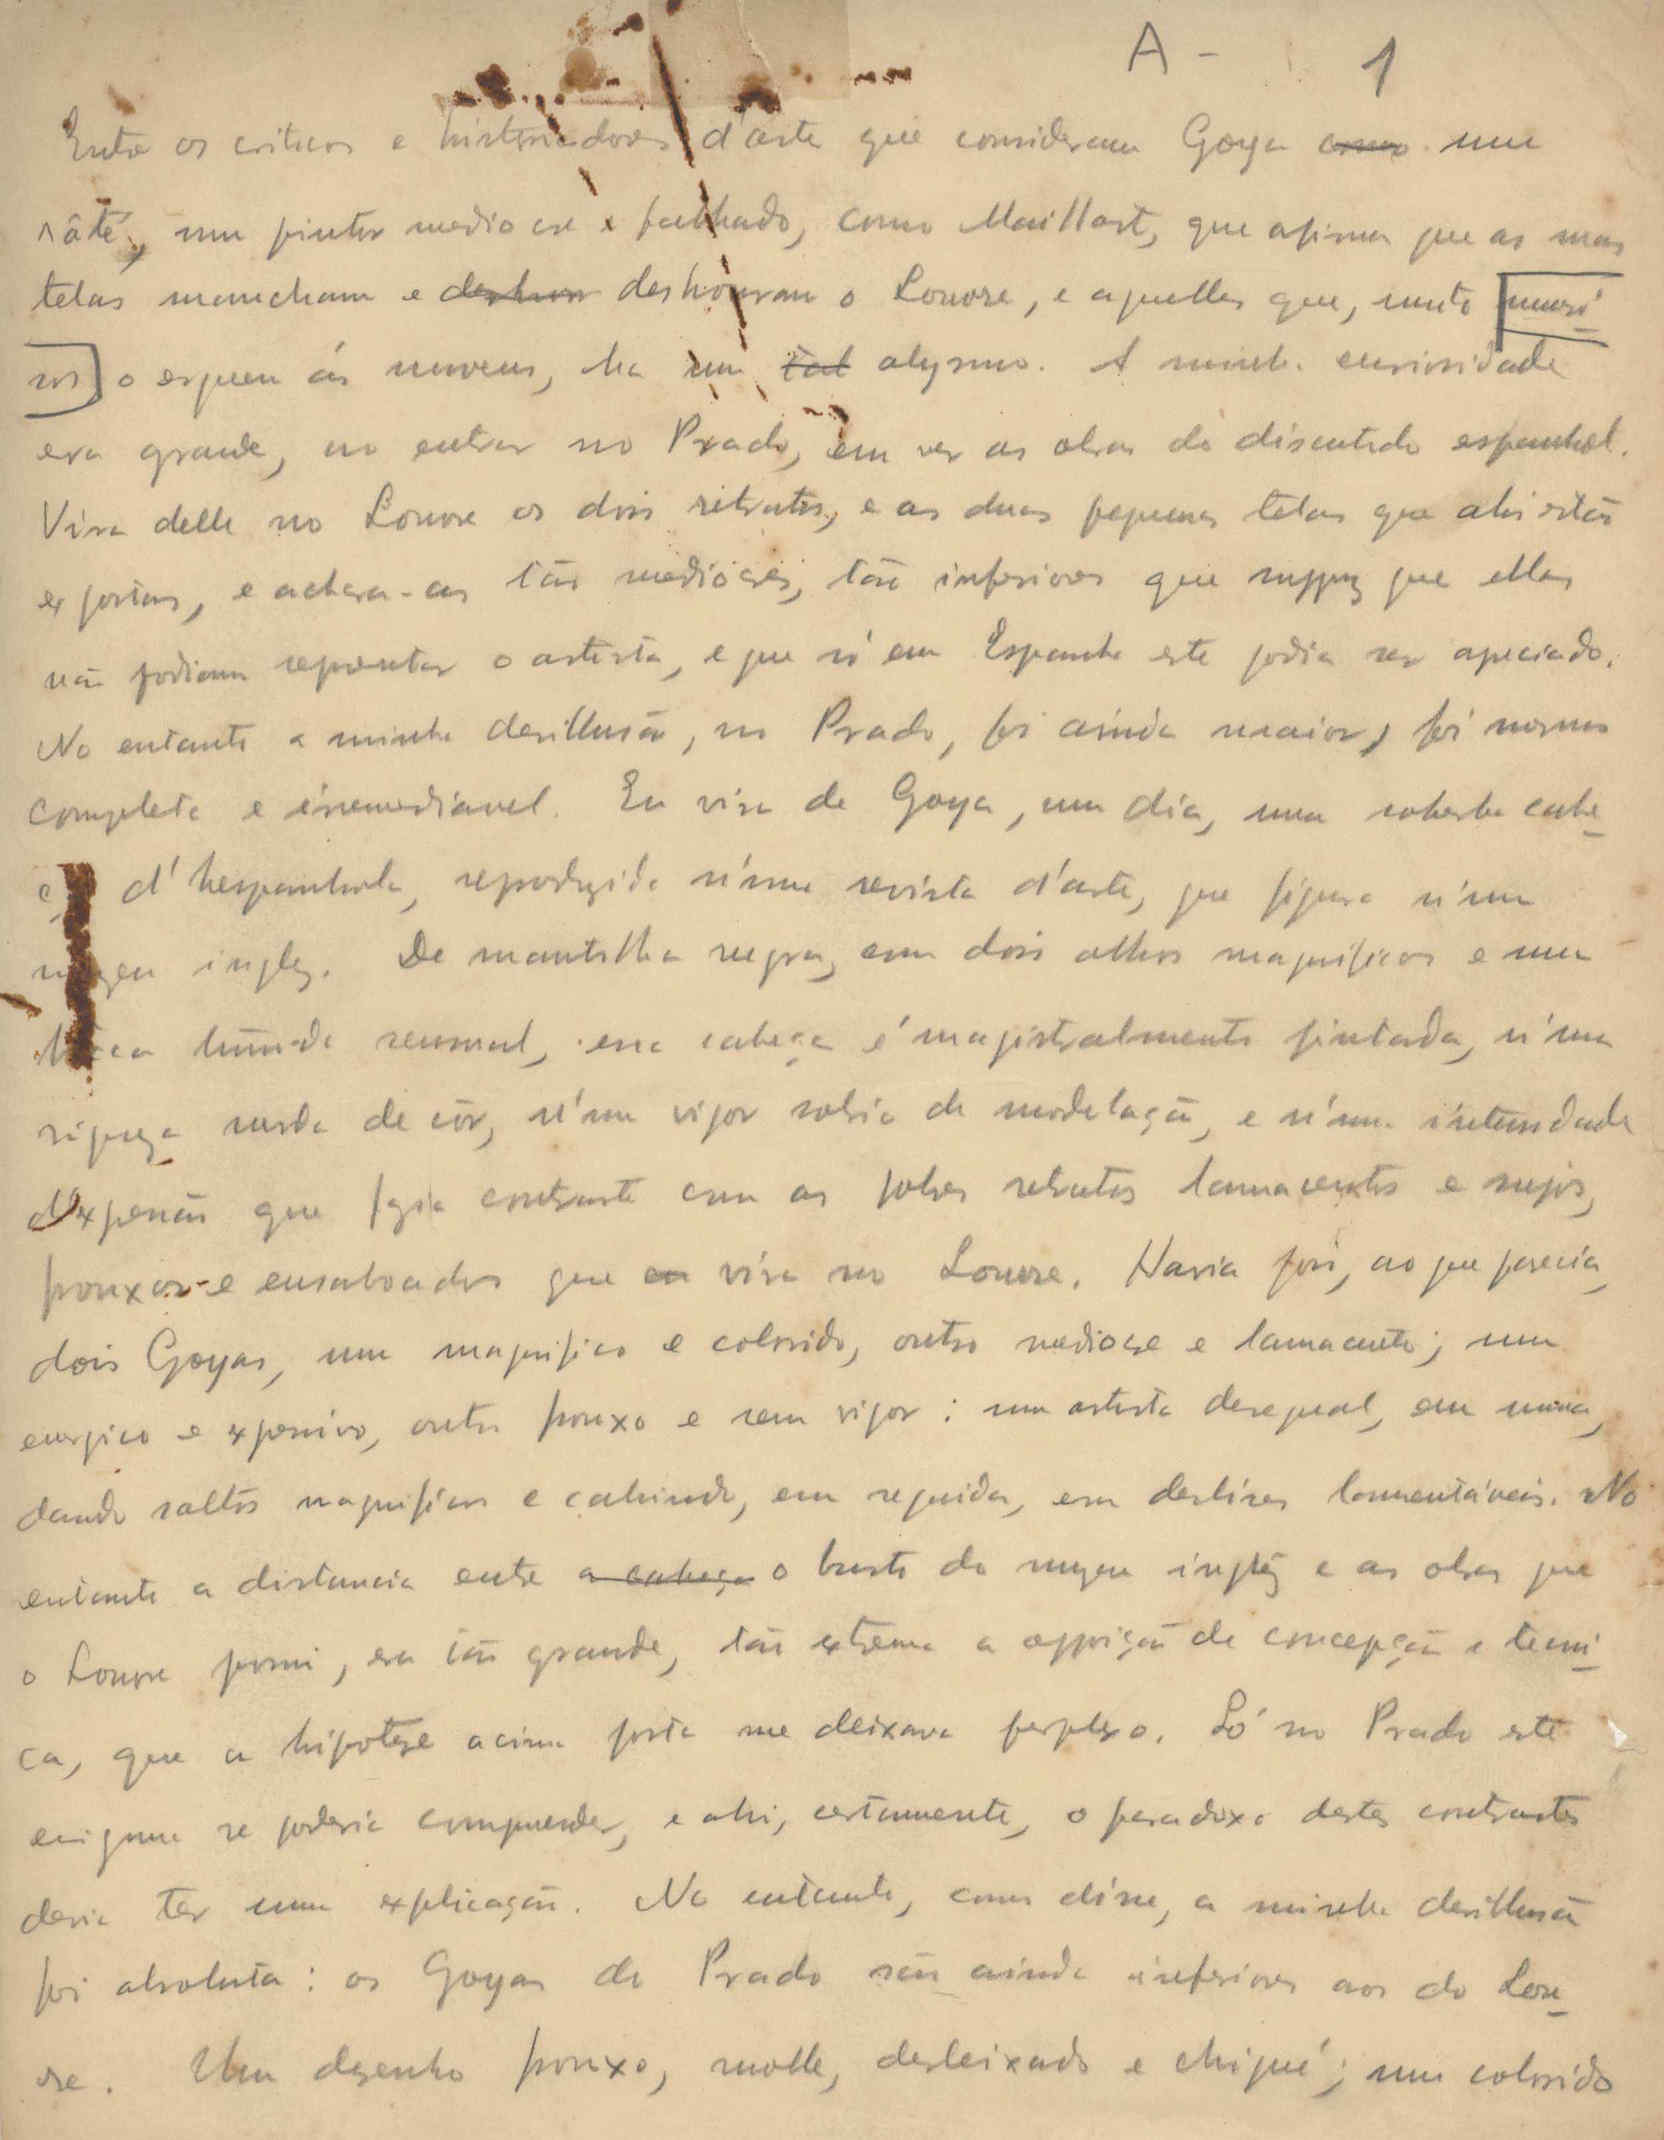 A - 1
Entre os criticos e historiadores d'arte que consideram Goya como um
râté, um pintor mediocre e falhado, como Maillart, que afirma que as suas
telas mancham e deshon deshonram o Louvre, e aquelles que, muito
o erguem ás nuvens, ha um tal abysmo. A minha curiosidade
era grande, ao entrar no Prado, em ver as obras do discutido espanhol.
Vira delle no Louvre os dois retratos, e as duas pequenas telas que ahi estão
expostas, e achara-as tão mediocres, tão inferiores que suppuz que ellas
não podiam representar o artista, e que só em Espanha este podia ser apreciado.
No entanto a minha desillusão, no Prado, foi ainda maior, foi mesmo
completa e irremediavel. Eu vira de Goya, um dia, uma soberba cabe-
ça d'hespanhola, reproduzida n'uma revista d'arte, que figura n'um
muzeu inglez. De mantilha negra, com dois olhos magnificos e uma
bôcca humida sensual, essa cabeça é magistralmente pintada, n'uma
riqueza surda de côr, n'um vigor sobrio de modelação, e n'uma intensidade
d'expressão que fazia contraste com os pobres retratos lamacentos e sujos,
frouxos e ensaboados que eu vira no Louvre. Havia pois, ao que parecia,
dois Goyas, um magnifico e colorido, outro mediocre e lamacento; um
energico e expressivo, outro frouxo e sem vigor: um artista desegual, em summa,
dando saltos magnificos e cahindo, em seguida, em deslizes lamentáveis. No
entanto a distancia entre a cabeça o busto do muzeu inglêz e as obras que
o Louvre possui, era tão grande, tão extrema a opposição de concepção e techni-
ca, que a hipoteze acima posta me deixava perplexo. Só no Prado este
enigma se poderia comprehender, e ahi, certamente, o paradoxo destes contrastes
devia ter uma explicação. No entanto, como disse, a minha desillusão
foi absoluta: os Goyas do Prado são ainda inferiores aos do Lou-
vre. Um dezenho frouxo, molle, desleixado e chiqué; um colorido